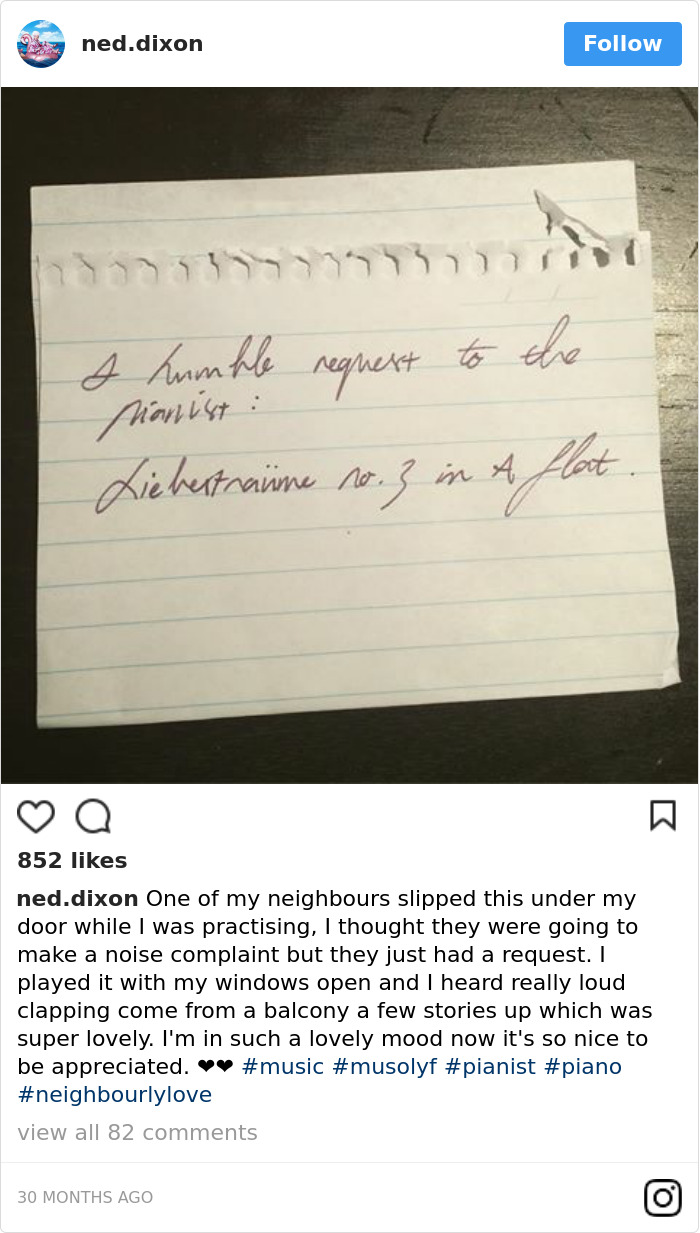 ned.dixon
Follow
A humble request to the
pianist:
Liebesträume no. 3 in A flat.
852 likes
ned.dixon One of my neighbours slipped this under my
door while I was practising, I thought they were going to
make a noise complaint but they just had a request. I
played it with my windows open and I heard really loud
clapping come from a balcony a few stories up which was
super lovely. I'm in such a lovely mood now it's so nice to
be appreciated. ❤❤ #music #musolyf #pianist #piano
#neighbourlylove
view all 82 comments
30 MONTHS AGO